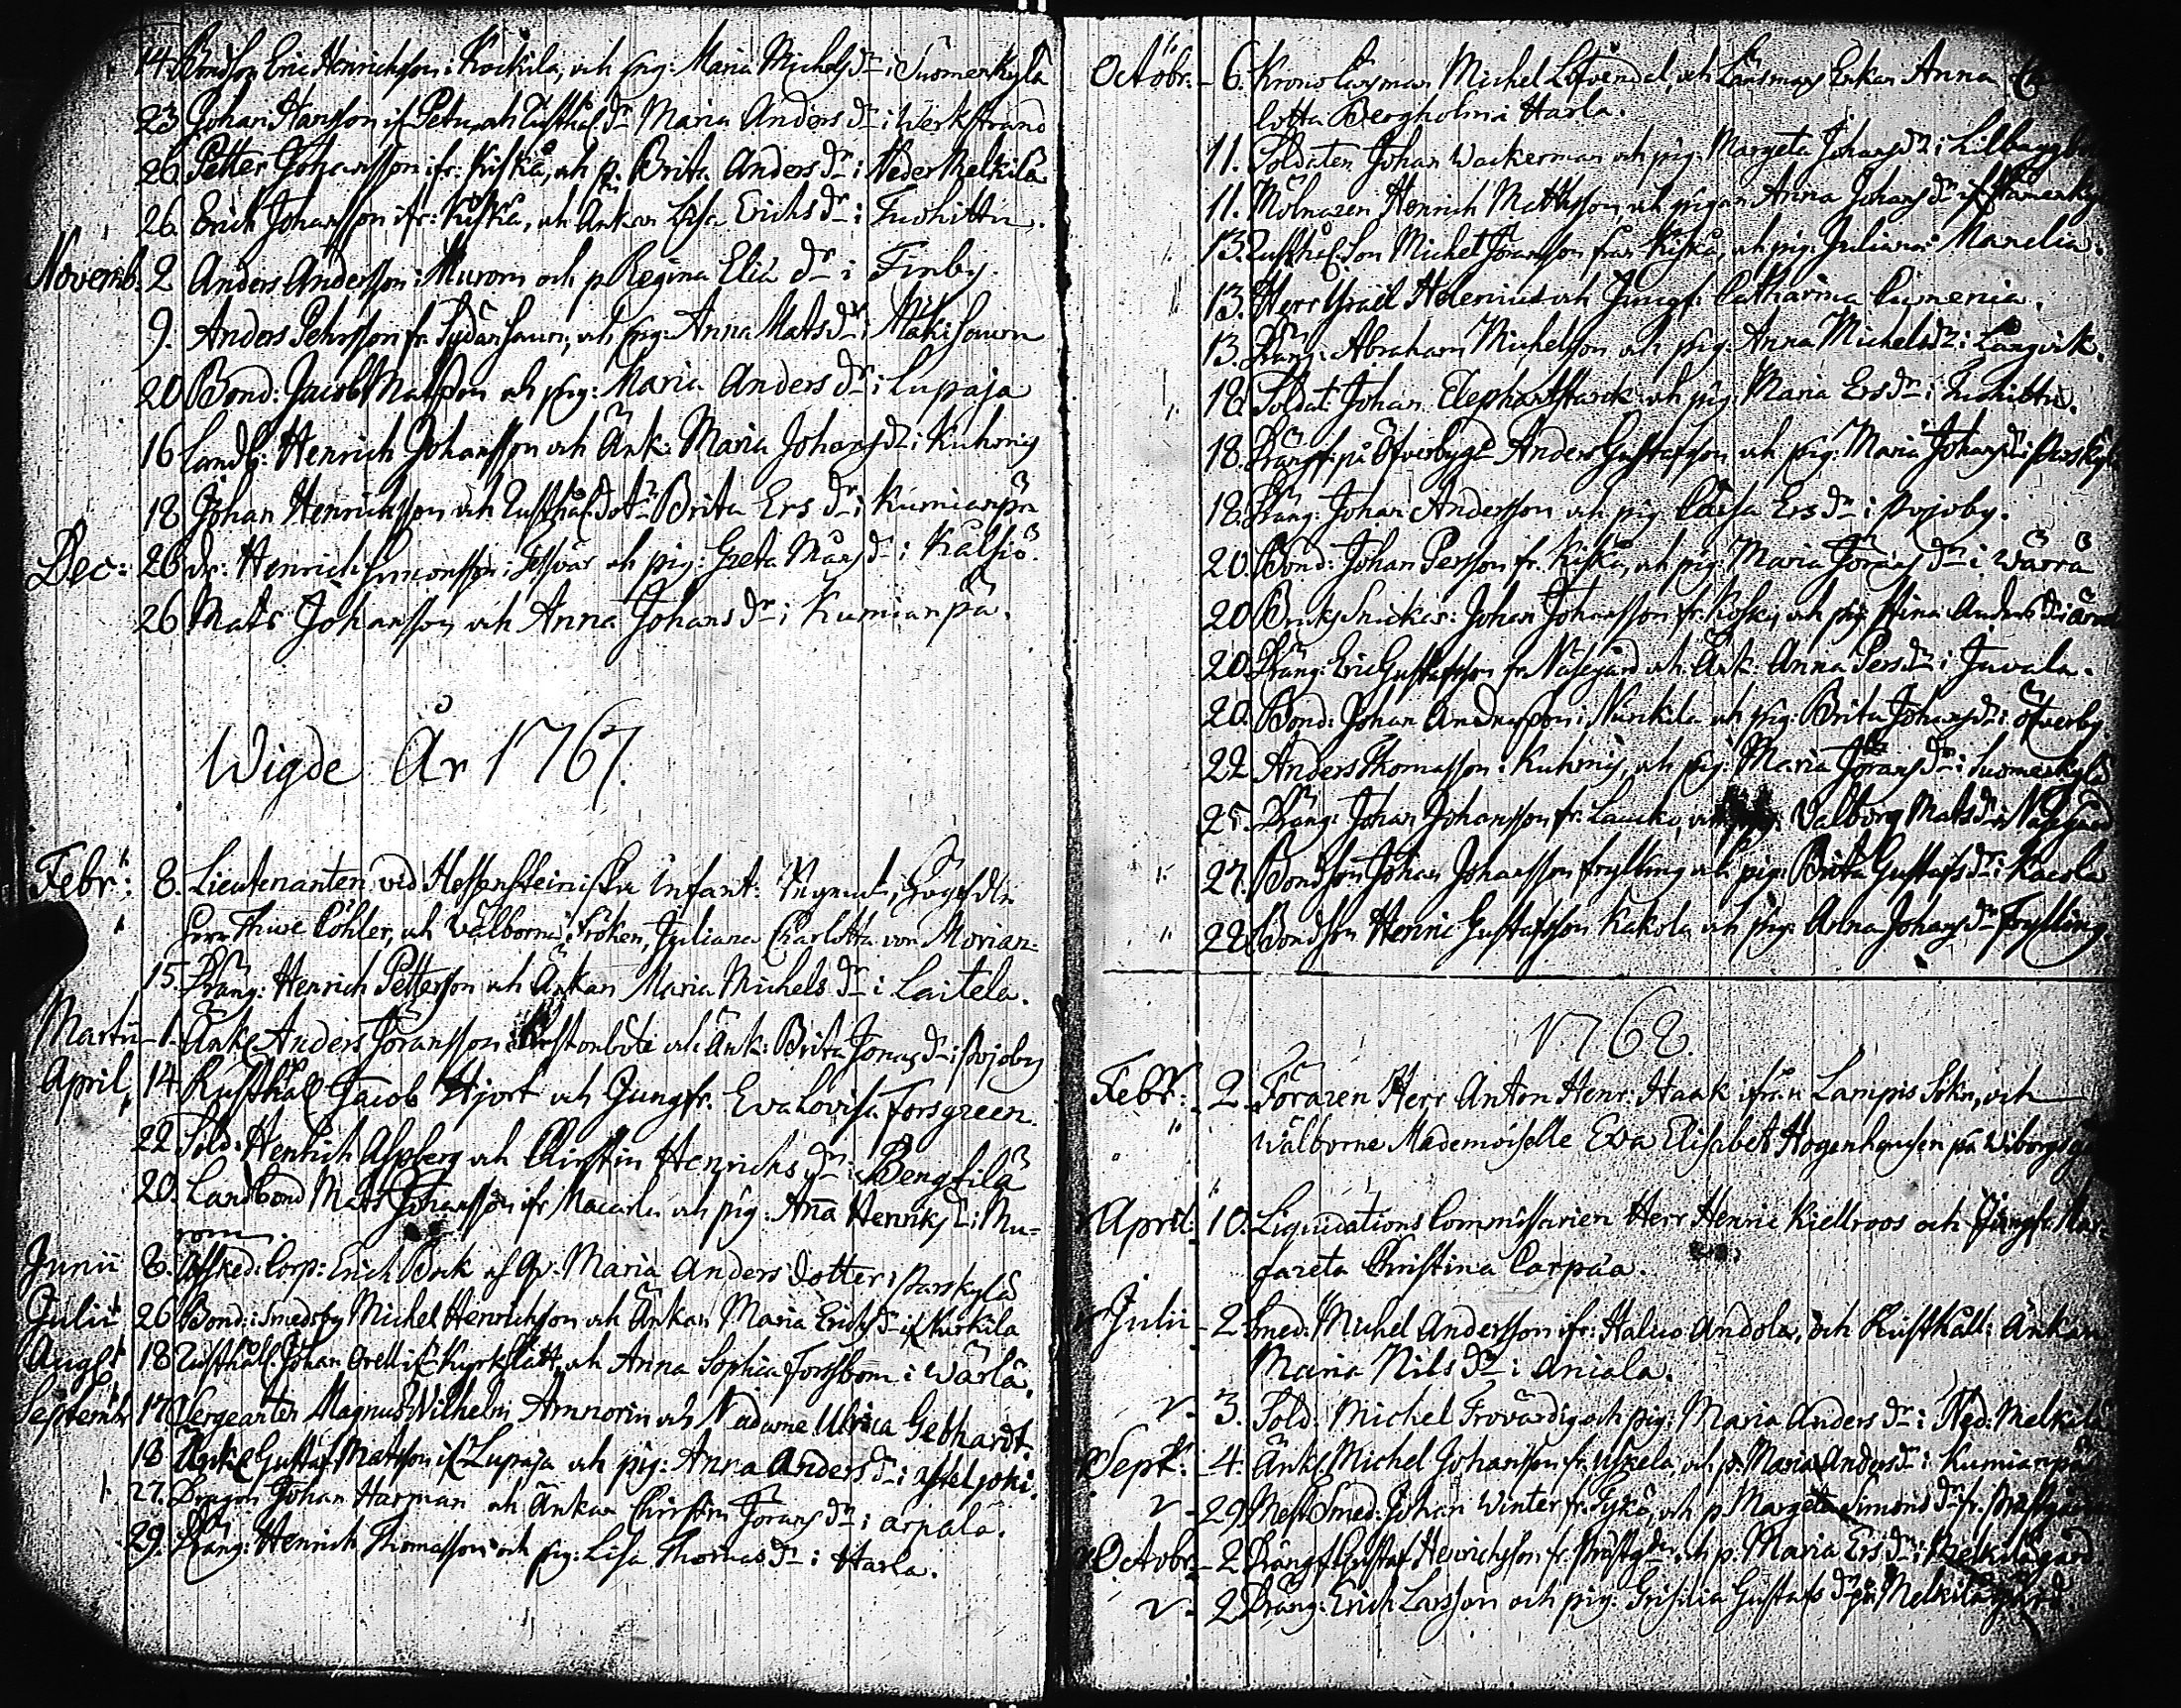 14. Bondson Eric Henrichsson i Kockila, och pig: Maria Michelsdr i Suomenkylä
23 Johan Hansson if. Petu, och Rusthål. dr Maria Anders dr i Werkstrand
26. Petter Johansson ifr. Kiska, och p. Brita Anders dr i Neder Melkilä
26. Erich Johansson ifr: Kiska, och Ankan Lisa Erichs dr i Tuohittu.
Novemb. 2 Anders Andersson i Murom och p Regina Elia dr i Finby.
9. Anders Pehrsson fr. Sydänsauro, och pig: Anna Mats dr i Mäkisauro
20 Bond: Jacob Matsson och pig: Maria Anders dr i Lupaja
16 Landb: Henrich Johansson och Änk: Maria Johans dr i Kuhmis
18 Johan Henricksson och Rusthål. dotr Brita Ers dr i Kumianpä
Dec: 26 dr: Henrich Simonsson i och pig: Greta Mårs dr i Kalsjö.
26 Mats Johansson och Anna Johans dr i Kumianpä.
Wigde År 1767.
Febr: 8. Lieutenanten vid Hessensteiniska Infant:
Herr Thure Cöhler, och Välborna Fröken, Juliana Charlotta von Morian.
15. Dräng: Henrich Pettersson och Änkan Maria Michels dr i Laitela.
Martii 1. Änkl Anders Jöransson i och Änk: Brita Jonas dr i Pojoby
April, 14 Rusthåll Jacob Hjort och Jungfr. Eva Lovisa Forsgreen.
22 Sold: Henrich Alpberg och Christin Henrichs dr i Bengtilä
20. Landbond Mats Johansson ifr Nacarla och pig: Anna Henriks d i Mu-
rom.
Junii 8. Afsked: Corp: Erich Bock och Maria Anders dotter i Parskylä
Julii 26 Bond: i Smedsby Michel Henrichsson och Änkan Maria Erichs dr if Nurkila
Augst 18 Rusthåll. Johan Orell ifr Kyrkslätt, och Anna Sophia Forssbom i Wärlä.
Septembr 17 Sergeanten Magnus Wilhelm Amnorin och Madame Ulrica Gebhardt.
18 Änkl Gustaf Matsson ifr Lupaja och pig: Anna Anders dr i joki.
27. Dragon Johan Harman och Änkan Christin Jörans dr i Arpala.
29. Dräng: Henrich Thomasson och pig: Lisa Thomas dr i Harla.
Octobr: 6. Krono Länsman Michel Löfvendal, och Länsmans Enkan Anna
lotta Bergholm i Harla.
11. Soldaten Johan Wackerman och pig: Margeta Johans dr i
11. Mölnaren Henrich Mathsson och pigan Anna Johans dr
13. Rusthål. Son Michel Jöransson från Kiska, och pig: Juliana Manelia.
13. Herr Israel Helenius och Jungf: Catharina Cumenia.
13. Dräng: Abraham Michelsson och pig: Anna Michelsdr i Långvik.
18. Soldat: Johan Elephant och pig: Maria Ers dr i Tuohittu.
18. Drängf: på Öfverbygd Anders Gustafsson och pig: Maria Johans dr i
18. Dräng: Johan Andersson och pig Caisa Ers dr i Pojoby.
20. Bond: Johan Persson fr. Kiska, och pig: Maria Jörans dr i Wärrä
20. Bruks Snickar: Johan Johansson fr. Koski och pig Stina Anders dr i
20. Dräng: Eric Gustafsson fr. Näsegård och Änk Anna Pers dr i Juvala.
20. Bond: Johan Andersson i Nurkila och pig: Brita Johans dr i Öfverby
22 Anders Thomasson i Kuhmis, och pig: Maria Jörans dr i Suomenkylä
25. Dräng: Johan Johansson fr. Lauko, och Valborg Mats dr i Näsegård
27. Bondson Johan Johansson Frylling och pig: Brita Gustafs dr i Kacola
22. Bondson Henric Gustafsson Kakola och pig: Anna Johans dr Frylling
1768.
Febr: 2. Föraren Herr Anton Henr: Haak ifrån Lampis Sokn, och
Wälborne Mademoiselle Eva Elisabet Hogenhausen på
April: 10. Liquidations Commissarien Herr Henric Kiellroos och Jungf: Mar-
gareta Christina Carpaa.
Julii 2 Smed: Michel Andersson ifr: Haluo Andola, och Rusthåll: Änkan
Maria Nils dr i Aniala.
3. Sold: Michel Trovärdig och pig: Maria Anders dr i Ned. Melkilä
Sept: 4. Änkl Michel Johansson fr. Uskela, och p. Maria Anders dr i Kumianpä
29 Mest. Smed: Johan Winter fr. Fyskä, och p Margeta Simons dr fr.
Octobr. 2 Drängf: Gustaf Henrichsson fr. och p. Maria Ers dr i Melkilägård
2 Dräng: Erich Larsson och pig: Grisilia Gustafs dr på Melkilägård